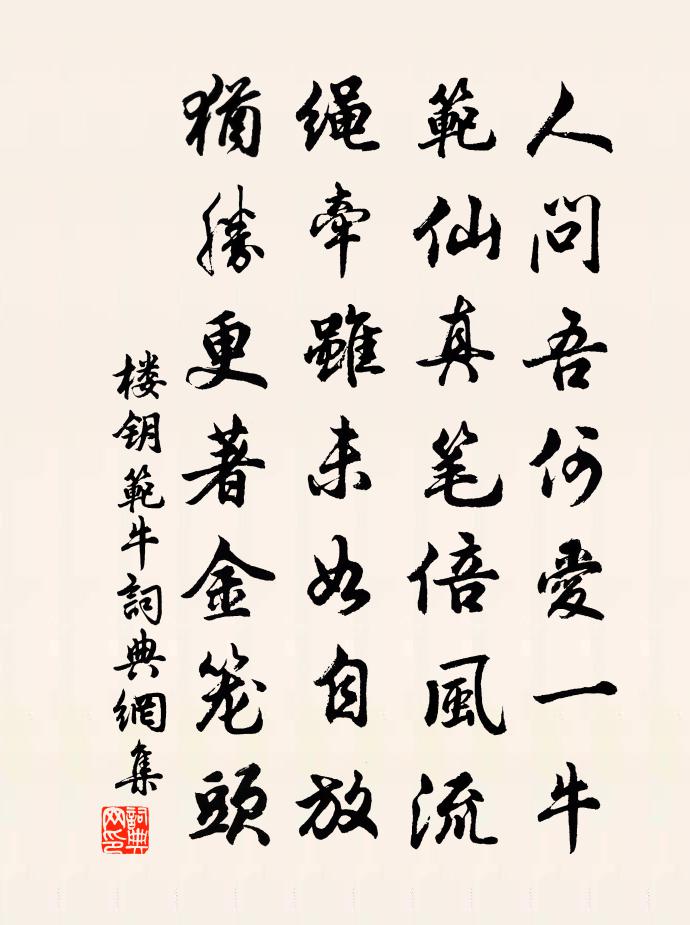 人問吾何愛一牛
範仙真笔倍風流
繩牽雖未如自放
猶勝更著金笼頭
楼钥範牛詞典網集
詞典
网印